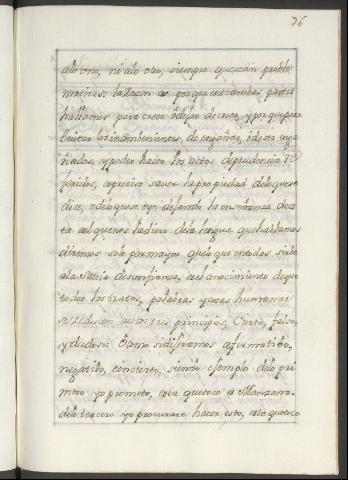 76
alo uno, ni alo otro, siempre que sean proble
maticos: la Razon es porque entrambas partes
hallamos para creer o dejar de creer, y porque para
evitar los inconvenientes, de engañar, o de ser enga
ñados, y poder hacer los actos de prudencia re
feridos, es preciso saver la propiedad de lo que se
dice, o de lo que se oye: dejando la enseñanza de es
ta a el que nos la diere de la lengua que hablamos
diremos solo por maior que lo que en todas sirbe
a la Savia desconfianza, es el conocimiento de que
todos los tratos, palabras y cosas humanas
se Reducen a estos tres principios, Cierto, falso,
y dudoso: Como si dijeramos afirmatibo,
negatibo, e incierto, siendo ejemplo de lo pri
mero yo prometo, esto que toco es Manzana.
de lo tercero yo procurare hacer esto, esto que toco